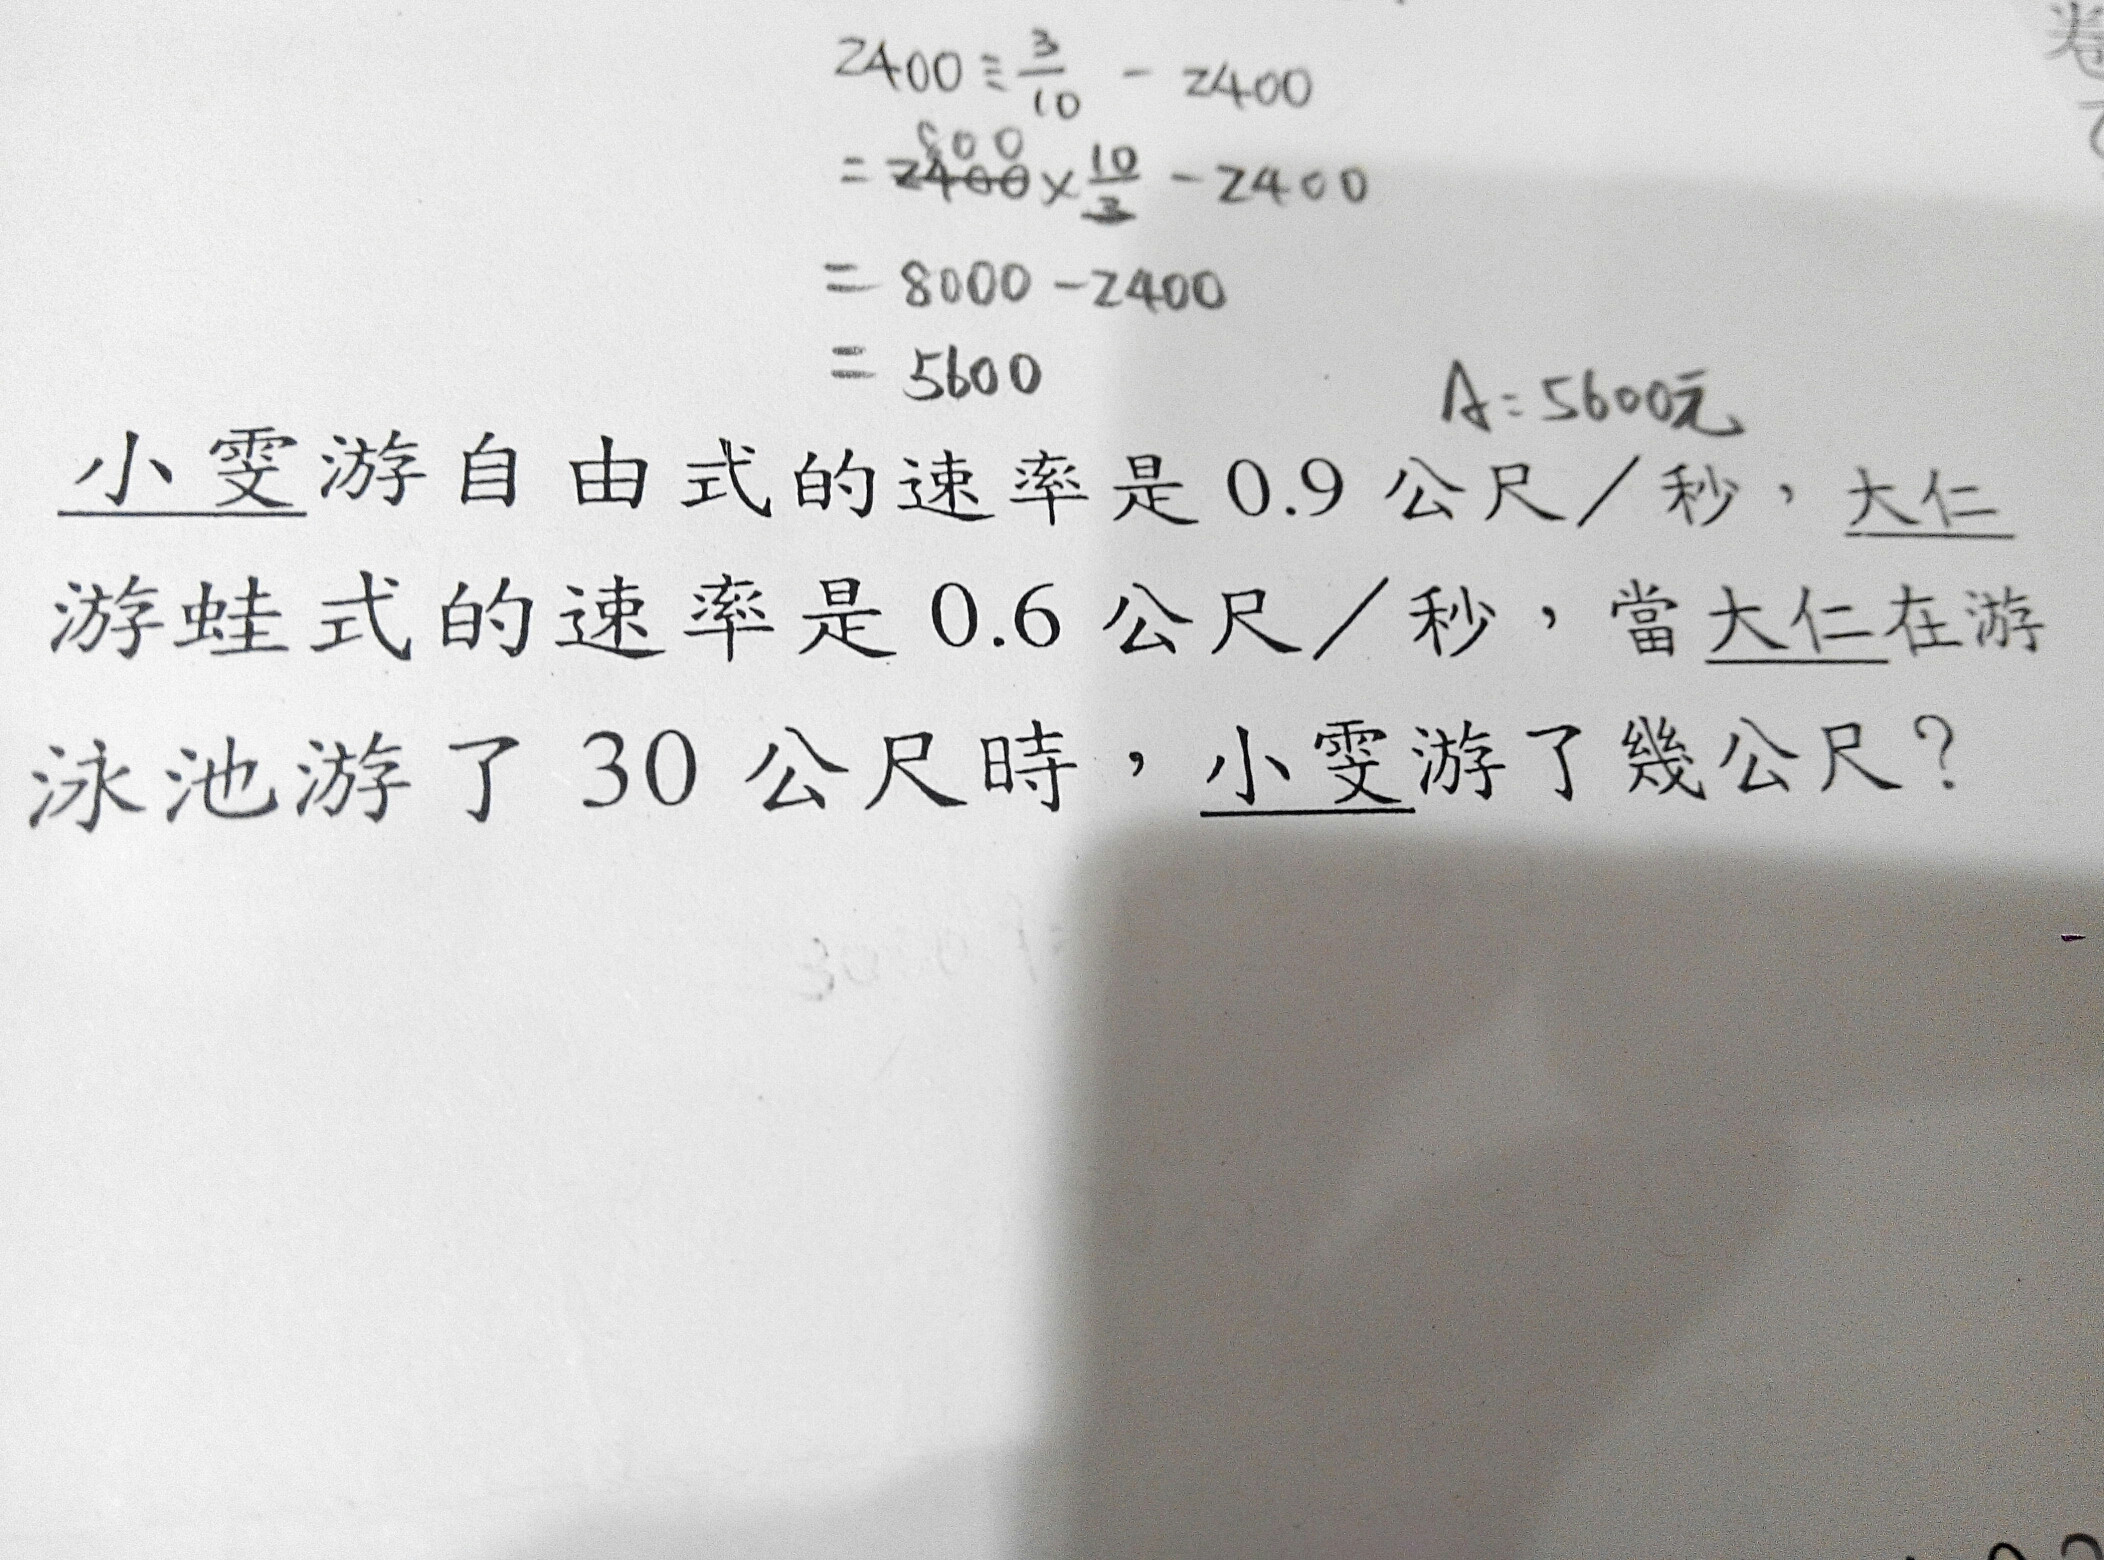 2400 ÷ 3/10 - 2400
800
= 2400 × 10/3 - 2400
= 8000 - 2400
= 5600
A=5600元
小雯游自由式的速率是 0.9 公尺／秒，大仁
游蛙式的速率是 0.6 公尺／秒，當大仁在游
泳池游了 30 公尺時，小雯游了幾公尺？